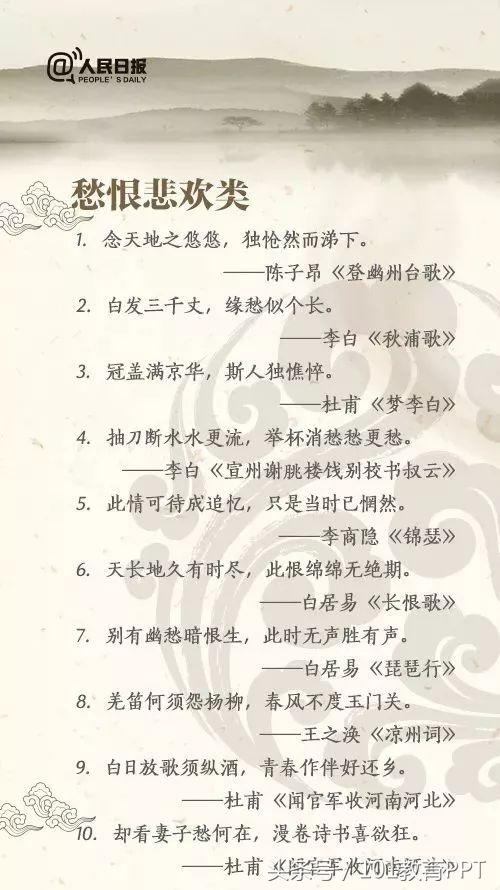 @人民日报
PEOPLE'S DAILY
愁恨悲欢类
1. 念天地之悠悠，独怆然而涕下。
——陈子昂《登幽州台歌》
2. 白发三千丈，缘愁似个长。
——李白《秋浦歌》
3. 冠盖满京华，斯人独憔悴。
——杜甫《梦李白》
4. 抽刀断水水更流，举杯消愁愁更愁。
——李白《宣州谢朓楼饯别校书叔云》
5. 此情可待成追忆，只是当时已惘然。
——李商隐《锦瑟》
6. 天长地久有时尽，此恨绵绵无绝期。
——白居易《长恨歌》
7. 别有幽愁暗恨生，此时无声胜有声。
——白居易《琵琶行》
8. 羌笛何须怨杨柳，春风不度玉门关。
——王之涣《凉州词》
9. 白日放歌须纵酒，青春作伴好还乡。
——杜甫《闻官军收河南河北》
10. 却看妻子愁何在，漫卷诗书喜欲狂。
——杜甫《闻官军收河南河北》
头条号/101教育PPT